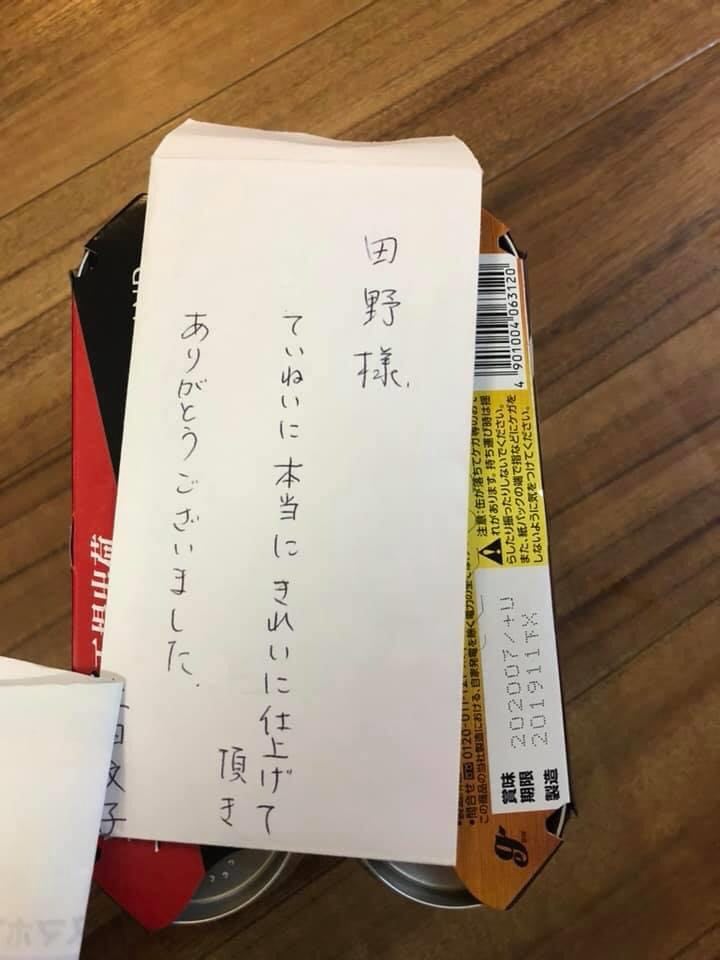 田野様.
ていねいに本当にきれいに仕上げて
頂き
ありがとうございました.
子
4 901004 063120
注意:缶が落ちてケガ等のおそ
れがあります。持ち運び時は揺
らしたり振ったりしないでください。
また、紙パックの端で指などにケガを
しないように気をつけてください。
賞味
期限
製造
202007/+U
201911TX
•問合せ 0120-011-12
この商品の当社製造における、自家発電を除く電力の全て
g